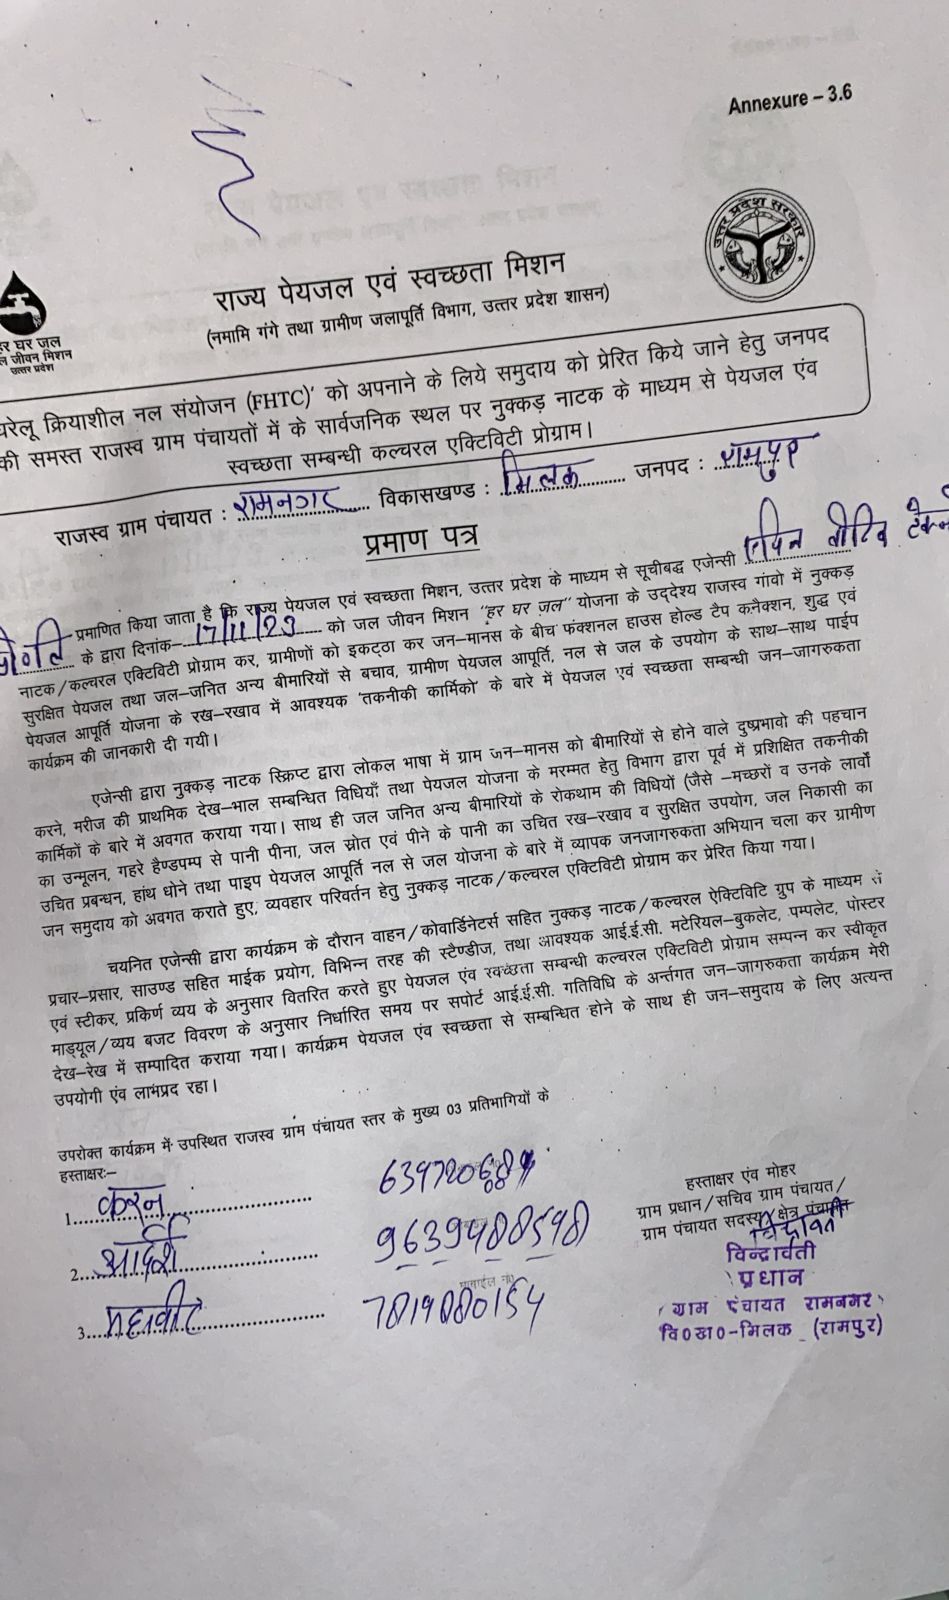 Annexure – 3.6
उत्तर प्रदेश सरकार
राज्य पेयजल एवं स्वच्छता मिशन
(नमामि गंगे तथा ग्रामीण जलापूर्ति विभाग, उत्तर प्रदेश शासन)
हर घर जल
जल जीवन मिशन
उत्तर प्रदेश
घरेलू क्रियाशील नल संयोजन (FHTC)' को अपनाने के लिये समुदाय को प्रेरित किये जाने हेतु जनपद
की समस्त राजस्व ग्राम पंचायतों में के सार्वजनिक स्थल पर नुक्कड़ नाटक के माध्यम से पेयजल एंव
स्वच्छता सम्बन्धी कल्चरल एक्टिविटी प्रोग्राम।
राजस्व ग्राम पंचायत : रामनगर विकासखण्ड : मिलक जनपद : रामपुर
प्रमाण पत्र
प्रमाणित किया जाता है कि राज्य पेयजल एवं स्वच्छता मिशन, उत्तर प्रदेश के माध्यम से सूचीबद्ध एजेन्सी
के द्वारा दिनांक– 17/11/23 को जल जीवन मिशन "हर घर जल" योजना के उद्देश्य राजस्व गांवो में नुक्कड़
नाटक/कल्चरल एक्टिविटी प्रोग्राम कर, ग्रामीणों को इकट्ठा कर जन–मानस के बीच फंक्शनल हाउस होल्ड टैप कनैक्शन, शुद्ध एवं
सुरक्षित पेयजल तथा जल–जनित अन्य बीमारियों से बचाव, ग्रामीण पेयजल आपूर्ति, नल से जल के उपयोग के साथ–साथ पाईप
पेयजल आपूर्ति योजना के रख–रखाव में आवश्यक 'तकनीकी कार्मिको' के बारे में पेयजल एवं स्वच्छता सम्बन्धी जन–जागरुकता
कार्यक्रम की जानकारी दी गयी।
एजेन्सी द्वारा नुक्कड़ नाटक स्क्रिप्ट द्वारा लोकल भाषा में ग्राम जन–मानस को बीमारियों से होने वाले दुष्प्रभावो की पहचान
करने, मरीज की प्राथमिक देख–भाल सम्बन्धित विधियाँ तथा पेयजल योजना के मरम्मत हेतु विभाग द्वारा पूर्व में प्रशिक्षित तकनीकी
कार्मिकों के बारे में अवगत कराया गया। साथ ही जल जनित अन्य बीमारियों के रोकथाम की विधियों (जैसे –मच्छरों व उनके लार्वो
का उन्मूलन, गहरे हैण्डपम्प से पानी पीना, जल स्रोत एवं पीने के पानी का उचित रख–रखाव व सुरक्षित उपयोग, जल निकासी का
उचित प्रबन्धन, हांथ धोने तथा पाइप पेयजल आपूर्ति नल से जल योजना के बारे में व्यापक जनजागरुकता अभियान चला कर ग्रामीण
जन समुदाय को अवगत कराते हुए, व्यवहार परिवर्तन हेतु नुक्कड़ नाटक/कल्चरल एक्टिविटी प्रोग्राम कर प्रेरित किया गया।
चयनित एजेन्सी द्वारा कार्यक्रम के दौरान वाहन/कोवार्डिनेटर्स सहित नुक्कड़ नाटक/कल्चरल ऐक्टिविटि ग्रुप के माध्यम से
प्रचार–प्रसार, साउण्ड सहित माईक प्रयोग, विभिन्न तरह की स्टैण्डीज, तथा आवश्यक आई.ई.सी. मटेरियल–बुकलेट, पम्पलेट, पोस्टर
एवं स्टीकर, प्रकिर्ण व्यय के अनुसार वितरित करते हुए पेयजल एंव स्वच्छता सम्बन्धी कल्चरल एक्टिविटी प्रोग्राम सम्पन्न कर स्वीकृत
माड्यूल/व्यय बजट विवरण के अनुसार निर्धारित समय पर सपोर्ट आई.ई.सी. गतिविधि के अर्न्तगत जन–जागरुकता कार्यक्रम मेरी
देख–रेख में सम्पादित कराया गया। कार्यक्रम पेयजल एंव स्वच्छता से सम्बन्धित होने के साथ ही जन–समुदाय के लिए अत्यन्त
उपयोगी एंव लाभप्रद रहा।
उपरोक्त कार्यक्रम में उपस्थित राजस्व ग्राम पंचायत स्तर के मुख्य 03 प्रतिभागियों के
हस्ताक्षरः–
1. करन
2. आर्दश 9639488598
3. महावीर 7819880154
मोबाईल न०
हस्ताक्षर एंव मोहर
ग्राम प्रधान/सचिव ग्राम पंचायत/
ग्राम पंचायत सदस्य/क्षेत्र पंचायत
विन्द्रावती
विन्द्रावती
प्रधान
ग्राम पंचायत रामनगर
वि०ख०-मिलक (रामपुर)